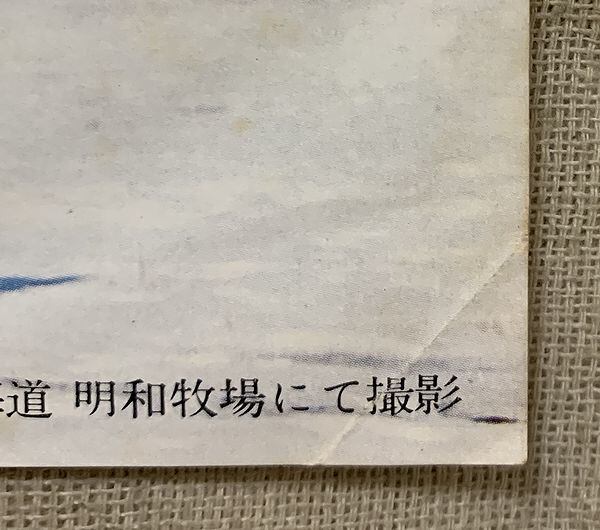 道 明和牧場にて撮影